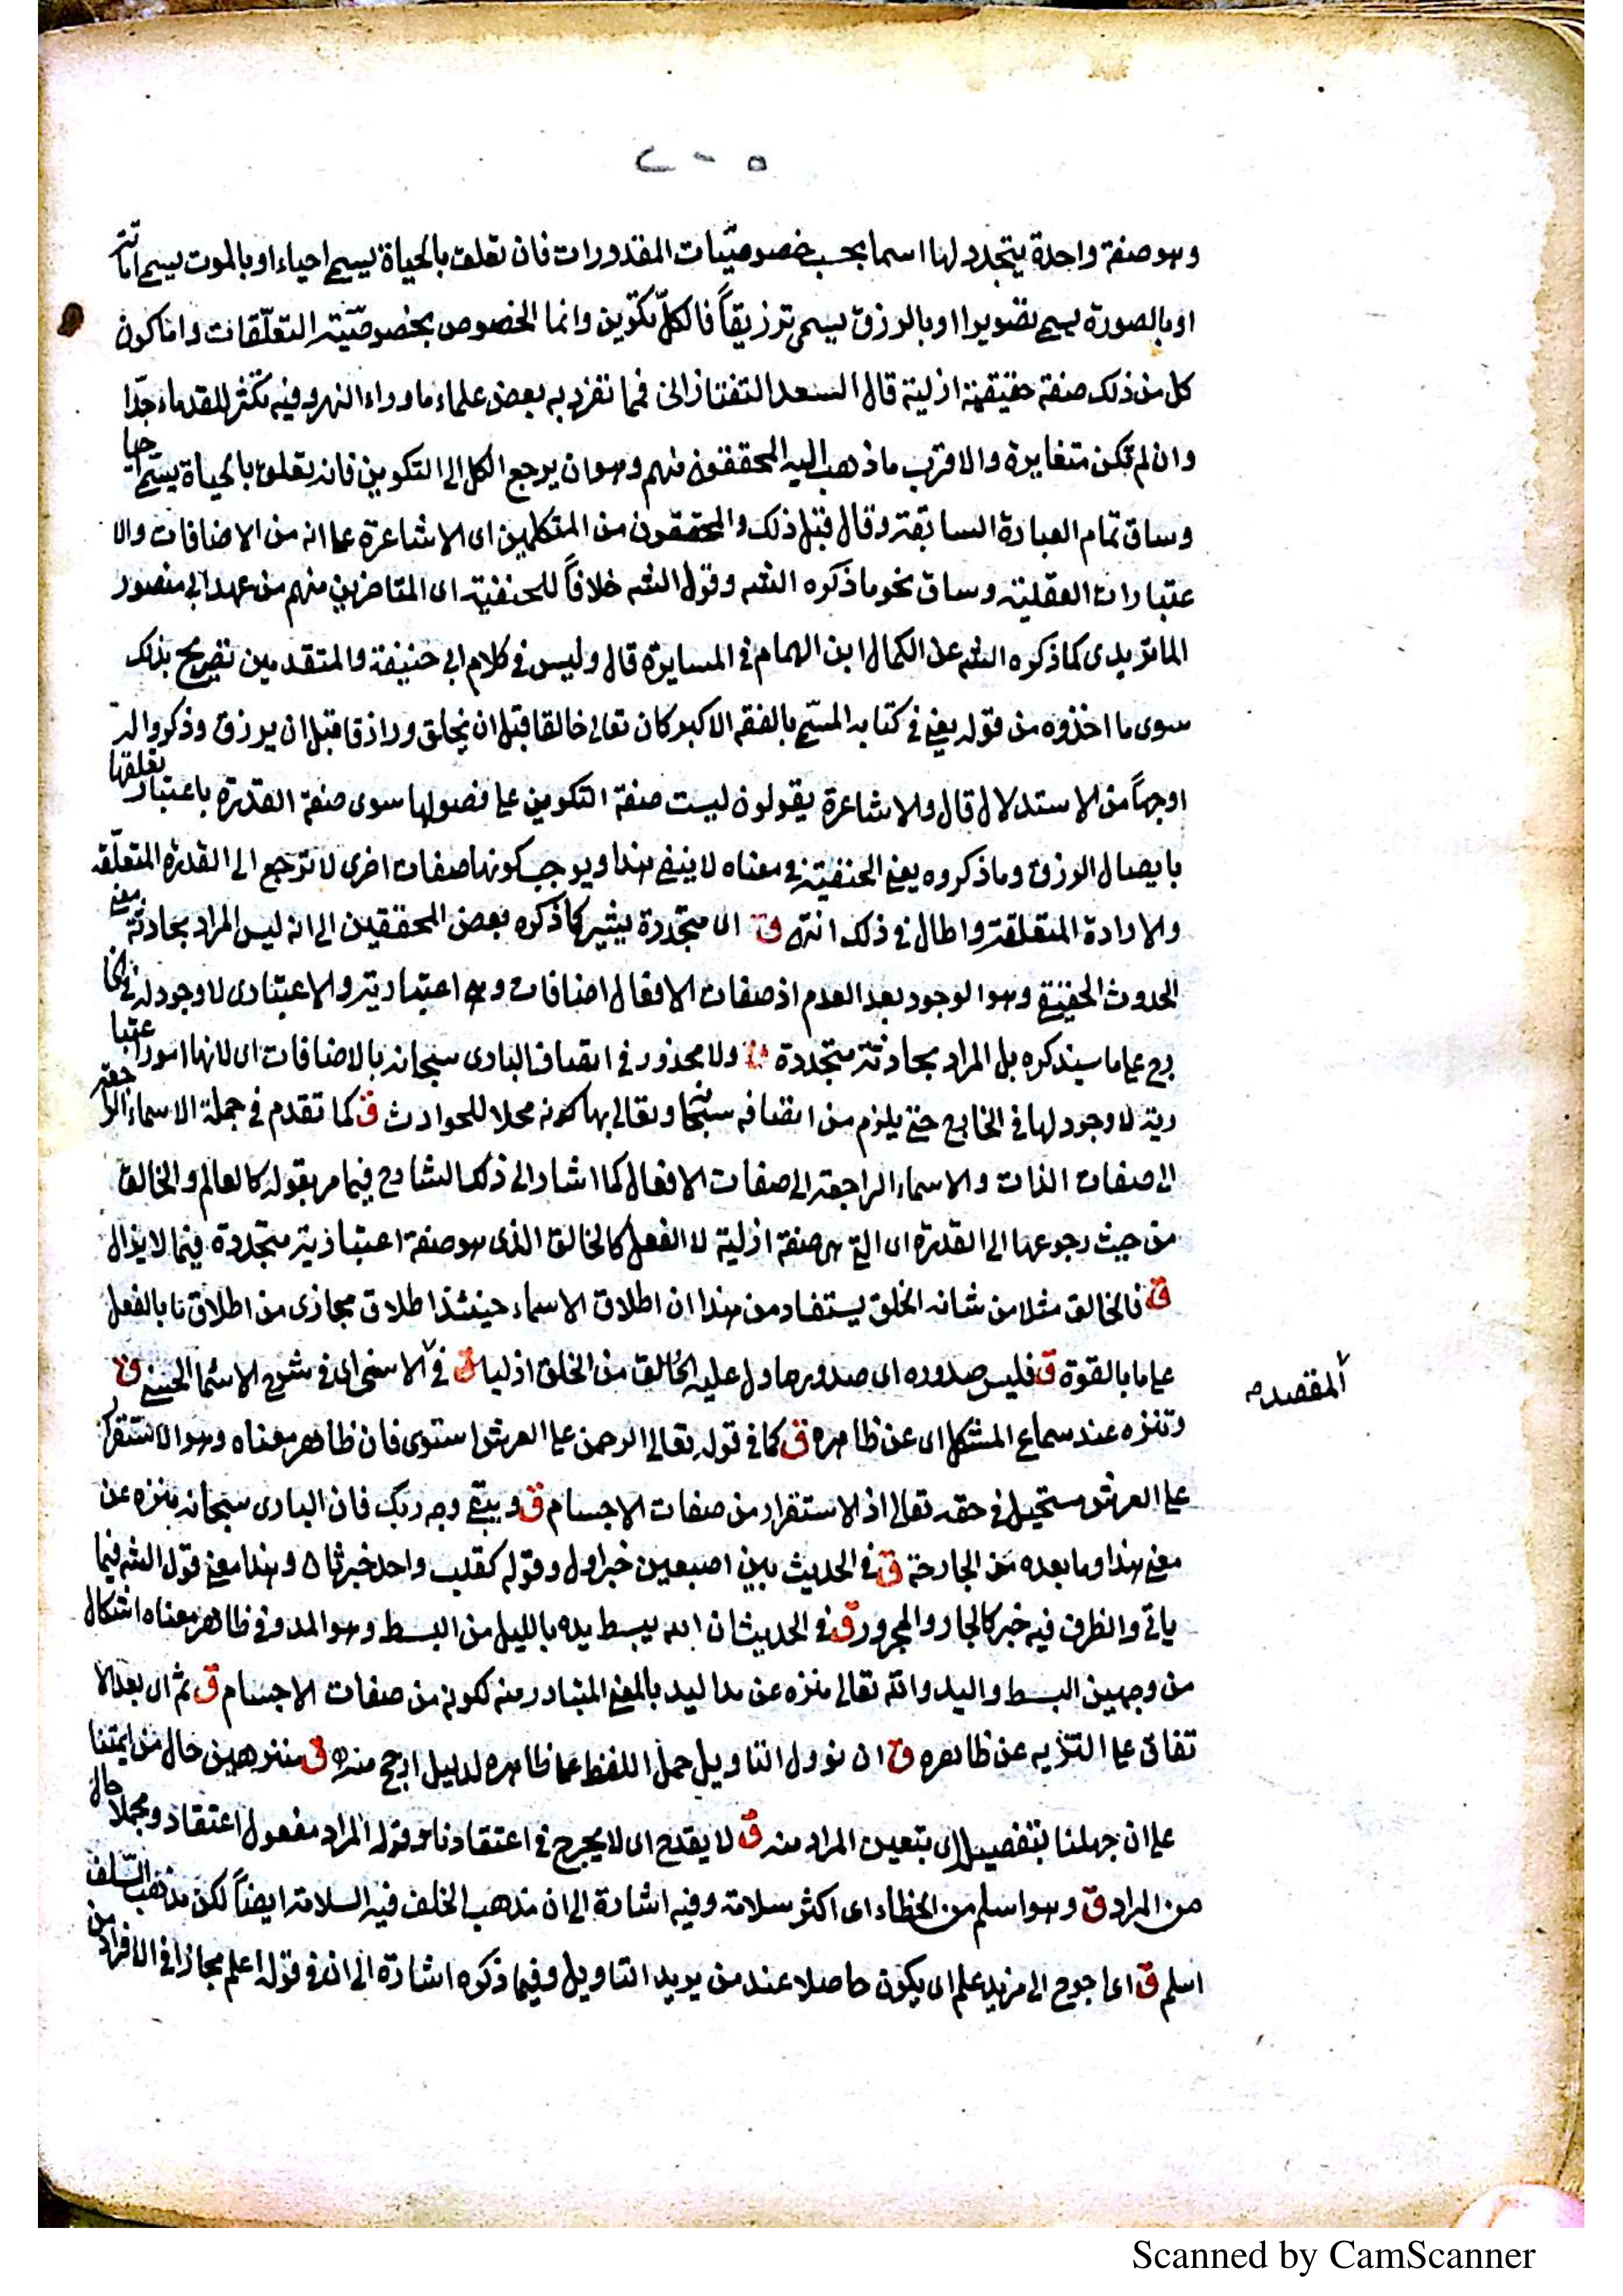 ٢٠٥
وهو صفة واحدة يتجدد لها اسما بحسب خصوصيّات المقدورات فان تعلق بالحياة يسمى احياء او بالموت يسمى اماتة
او بالصورة يسمى تصويرا او بالرزق يسمى ترزيقاً فالكلّ تكوين وانما الخصوص بخصوصيّة التعلّقات واما كون
كل من ذلك صفة حقيقية ازلية قال السعد التفتازانى فمما تفرد به بعض علماء ما وراء النهر وفيه تكثر للقدماء جدّا
وان لم تكن متغايرة والاقرب ما ذهب اليه المحققون منهم وهو ان يرجع الكل الى التكوين فانه يعلق بالحياة يسمّى احيا
وساق تمام العبارة السابقة وقال قبل ذلك والمحققون من المتكلمين اى الاشاعرة على انه من الاضافات والا
عتبارات العقلية وساق نحو ما ذكره الشه وقول الشه خلافاً للحنفية اى المتاخرين منهم من عهد ابى منصور
الماتريدى كما ذكره الشه عن الكمال ابن الهمام فى المسايرة قال وليس فى كلام ابى حنيفة والمتقدمين تصريح بذلك
سوى ما اخذوه من قوله يعنى فى كتابه المسمّى بالفقه الاكبر كان تعالى خالقا قبل ان يخلق ورازقا قبل ان يرزق وذكروا له
اوجهاً من الاستدلال قال والاشاعرة يقولون ليست صفة التكوين على فصولها سوى صفة القدرة باعتبار تعلقها
بايصال الرزق وما ذكروه يعنى الحنفية فى معناه لا ينفى هذا ويوجب كونها صفات اخرى لا ترجع الى القدرة المتعلّقة
والارادة المتعلقة واطال فى ذلك انتهى ق اى متجددة يشير كما ذكره بعض المحققين الى انه ليس المراد بحادثة معنى
الحدوث الحقيقى وهو الوجود بعد العدم اذ صفات الافعال اضافات وهى اعتبارية والاعتبارى لا وجود له فى الخا
رج على ما سيذكره بل المراد بحادثة متجددة ق ولا محذور فى اتصاف البارى سبحانه بالاضافات اى لانها امور اعتبا
رية لا وجود لها فى الخارج حتى يلزم من اتصافه سبحانه وتعالى بها كونه محلا للحوادث ق كما تقدم فى جملة الاسماء الراجعة
الى صفات الذات والاسماء الراجعة الى صفات الافعال كما اشار الى ذلك الشارح فيما مر بقوله كالعالم والخالق
من حيث رجوعها الى القدرة اى التى هى صفة ازلية لا الفعل كالخالق الذى هو صفة اعتبارية متجددة فيما لا يزال
ق فالخالق مثلا من شانه الخلق يستفاد من هذا ان اطلاق الاسماء حينئذ اطلاق مجازى من اطلاق ما بالفعل
على ما بالقوة ق فليس صدوره اى صدور ما دل عليه الخالق من الخلق ازليا ق فى الاسنى اى فى شرح الاسما الحسنى ق
المقصد
وتنزه عند سماع المشكل اى عن ظاهره ق كما فى قوله تعالى الرحمن على العرش استوى فان ظاهر معناه وهو الاستقرار
على العرش مستحيل فى حقه تعالى اذ الاستقرار من صفات الاجسام ق ويبقى وجه ربك فان البارى سبحانه منزه عن
معنى هذا وما بعده من الجارحة ق فى الحديث بين اصبعين خبر اول وقوله كقلب واحد خبر ثان وهذا معنى قول الشه فيما
ياتى والظرف فيه خبر كالجار والمجرور ق فى الحديث ان الله يبسط يده بالليل من البسط وهو المد وفى ظاهر معناه اشكال
من وجهين البسط واليد والله تعالى منزه عن مد اليد بالمعنى المتبادر منه لكونه من صفات الاجسام ق ثم اى بعد الا
تفاق على التنزيه عن ظاهره ق ان نوول التاويل حمل اللفظ على ظاهره لدليل ارجح منه ق منزهين حال من ايمتنا
على ان جهلنا بتفصيله اى بتعيين المراد منه ق لا يقدح اى لا يجرح فى اعتقادنا وقوله المراد مفعول اعتقاد ومجملا حال
من المراد ق وهو اسلم من الخطاء اى اكثر سلامة وفيه اشارة الى ان مذهب الخلف فيه السلامة ايضاً لكن مذهب السّلف
اسلم ق اى احوج الى مزيد علم اى يكون حاصلا عند من يريد التاويل وفيما ذكره اشارة الى ان فى قوله اعلم مجازا فى الافراد من
Scanned by CamScanner